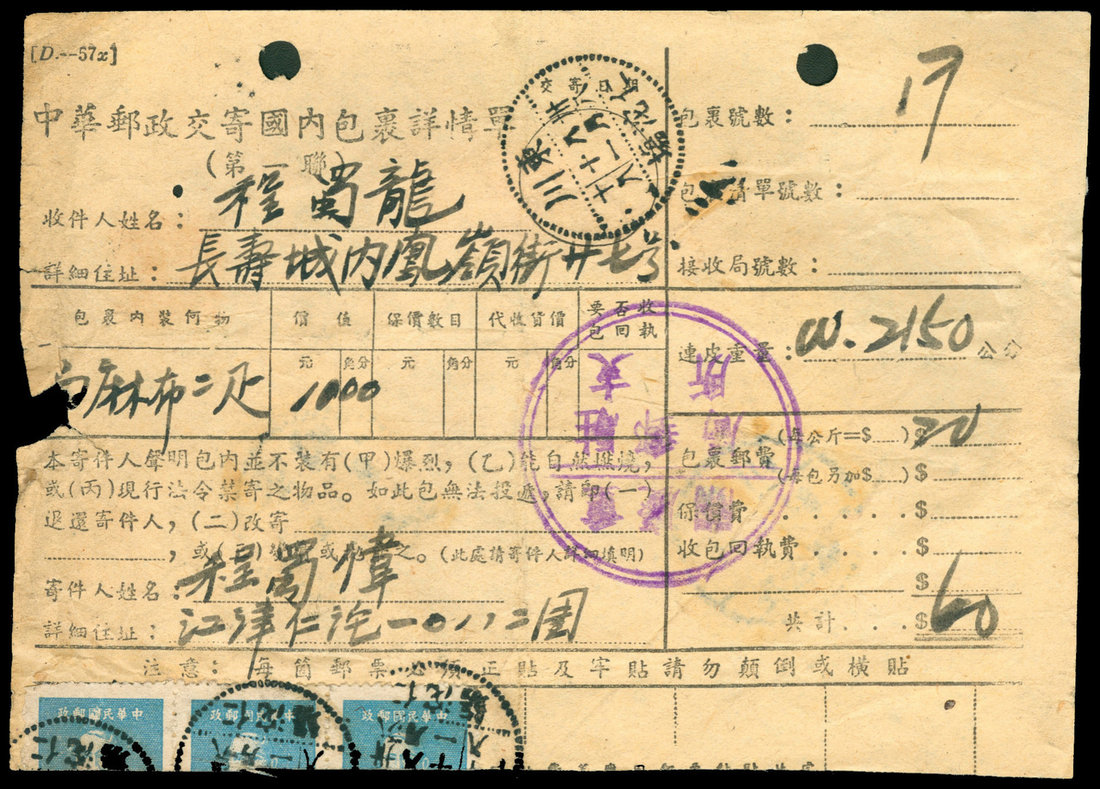 [D.--57x]
中華郵政交寄國內包裹詳情單
(第一聯)
收件人姓名：程蜀龍
詳細住址：長壽城內鳳嶺街廿七号
交寄日期
東川
包裹號數：17
包裹清單號數：
接收局號數：
包裹內裝何物
信值
保價數目
代收貨價
要否收包回執
元 角分 元 角分 元 角分
白麻布二疋 1000
連皮重量：W.2150公分
(每公斤=$ )$20
包裹郵費
(每包另加$ )$
保信費 . . . . . . $
收包回執費 . . . . $
$
共計 . . . $60
本寄件人聲明包內並不裝有(甲)爆烈，(乙)能自然燃燒，
或(丙)現行法令禁寄之物品。如此包無法投遞，請即(一)
退還寄件人，(二)改寄
，或(三) 或 之。(此處請寄件人詳細填明)
寄件人姓名：程蜀偉
詳細住址：江津仁沱一〇八二團
注意：每箇郵票必須正貼及字貼請勿顛倒或橫貼
中華民國郵政
中華民國郵政
中華民國郵政
仁沱
仁沱
仁沱